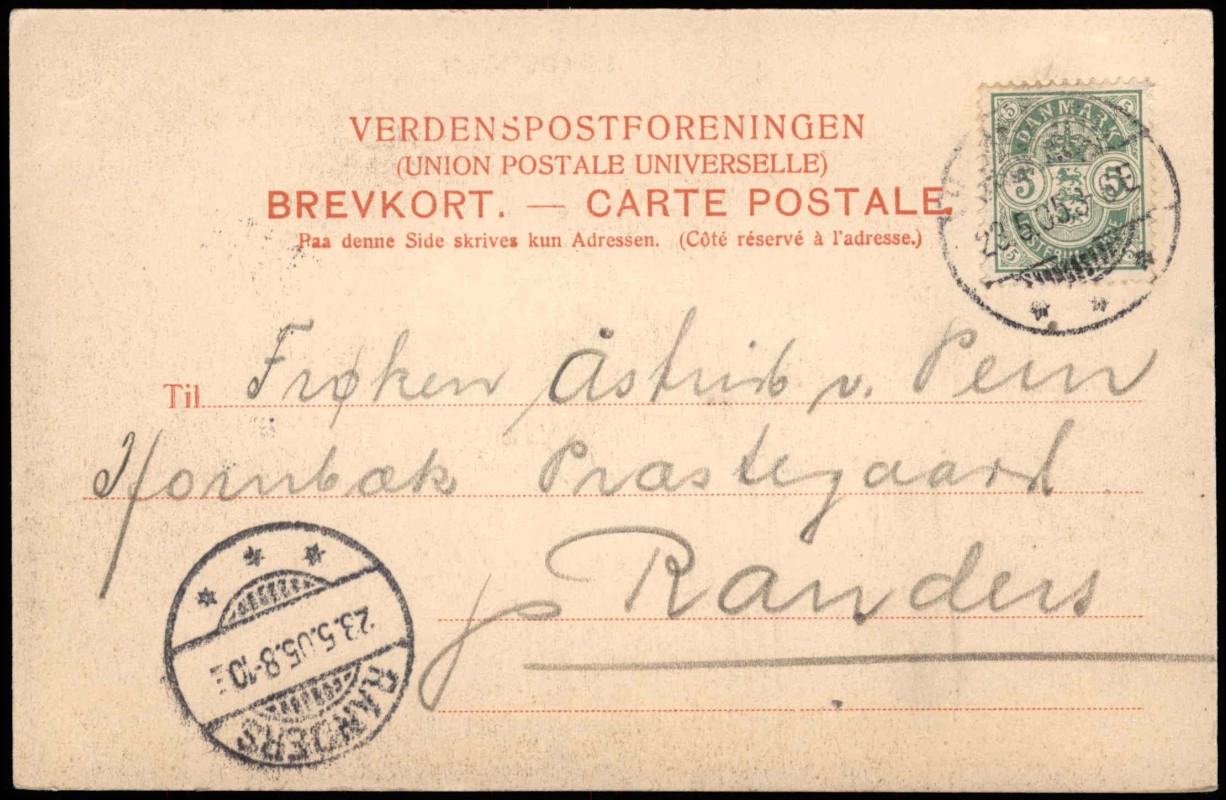 VERDENSPOSTFORENINGEN
(UNION POSTALE UNIVERSELLE)
BREVKORT. — CARTE POSTALE.
Paa denne Side skrives kun Adressen. (Côté réservé à l'adresse.)
5 DANMARK 5
5 5
5 5
23.5.05.3
Til Frøken Astrid v. Pein
Hornbæk Præstegaard
p Randers
23.5.05.8-10
RANDERS